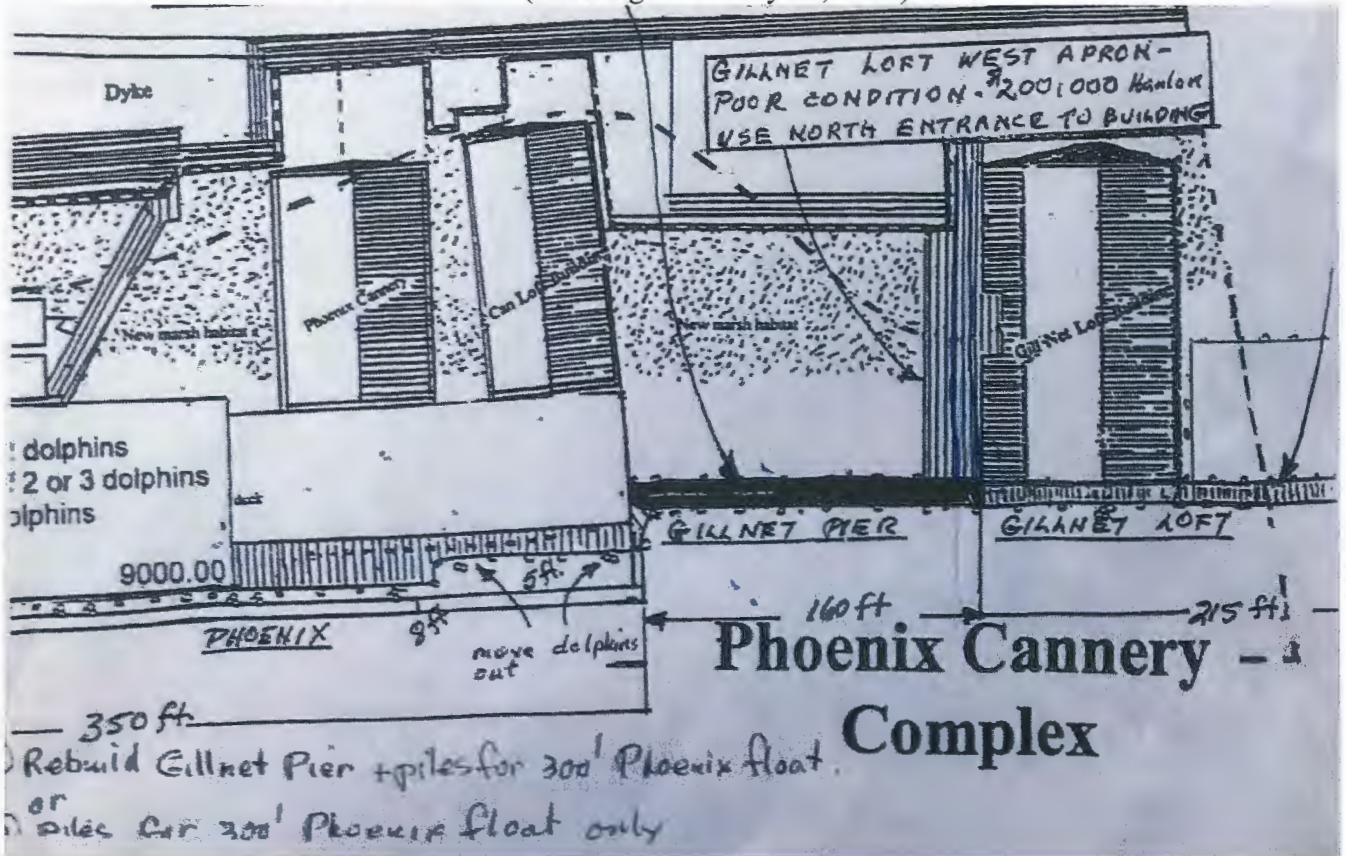 GILLNET LOFT WEST APRON-
POOR CONDITION. $200,000 Hanlon
USE NORTH ENTRANCE TO BUILDING
Dyke
Phoenix Cannery
Can Loft Building
New marsh habitat
New marsh habitat
Gill Net Loft
dolphins
2 or 3 dolphins
dolphins
dock
9000.00
GILLNET PIER
GILLNET LOFT
5ft.
8ft
PHOENIX
move dolphins
out
160ft
215ft
350ft.
Phoenix Cannery
Complex
Rebuid Gillnet Pier + piles for 300' Phoenix float.
or
piles for 300' Phoenix float only